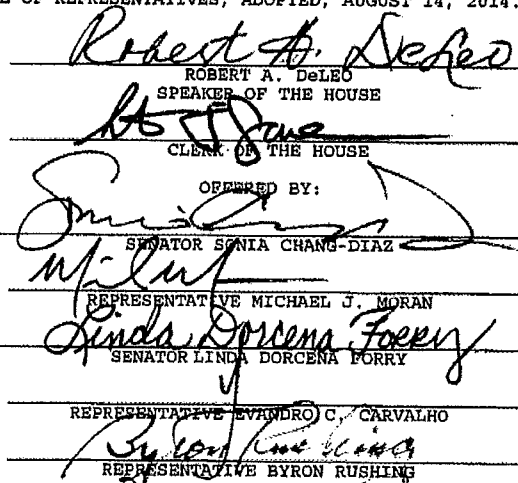 E OF REPRESENTATIVES, ADOPTED, AUGUST 14, 2014.
Robert A. DeLeo
ROBERT A. DeLEO
SPEAKER OF THE HOUSE
CLERK OF THE HOUSE
OFFERED BY:
SENATOR SONIA CHANG-DIAZ
REPRESENTATIVE MICHAEL J. MORAN
Linda Dorcena Forry
SENATOR LINDA DORCENA FORRY
REPRESENTATIVE EVANDRO C. CARVALHO
Byron Rushing
REPRESENTATIVE BYRON RUSHING